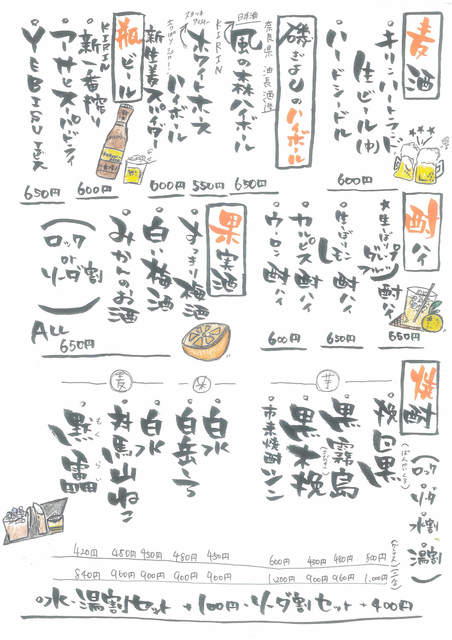 麦酒
・キリンハートランド
生ビール(中)
・ハードシードル
600円
磯ぎよしのハイボール
奈良県 油長酒造
日本酒
・風の森ハイボール
650円
KIRIN
・ホワイトホース
ハイボール
550円
・新生姜スパイダー
600円
瓶ビール
KIRIN
・新一番搾り
600円
・アサヒスーパードライ
・YEBISUビール
650円
酎ハイ
★生しぼり
グレープフルーツ
酎ハイ
650円
・生しぼり
レモン酎ハイ
650円
・カルピス酎ハイ
・ウーロン酎ハイ
600円
果実酒
・すっきり梅酒
・白い梅酒
・みかんのお酒
(ロック or ソーダ割)
ALL
650円
焼酎
(ロック・ソーダ・水割・湯割)
芋
・挽臼黒
・黒霧島
・黒木挽
・市来焼酎
米
・白水
・白岳しろ
麦
・白水
・対馬山ねこ
・黙雷
もくらい
420円 480円 450円 480円 450円 600円 450円 480円 500円
840円 960円 900円 960円 900円 1,200円 900円 960円 1,000円
◎水・湯割セット +100円・ソーダ割セット +400円